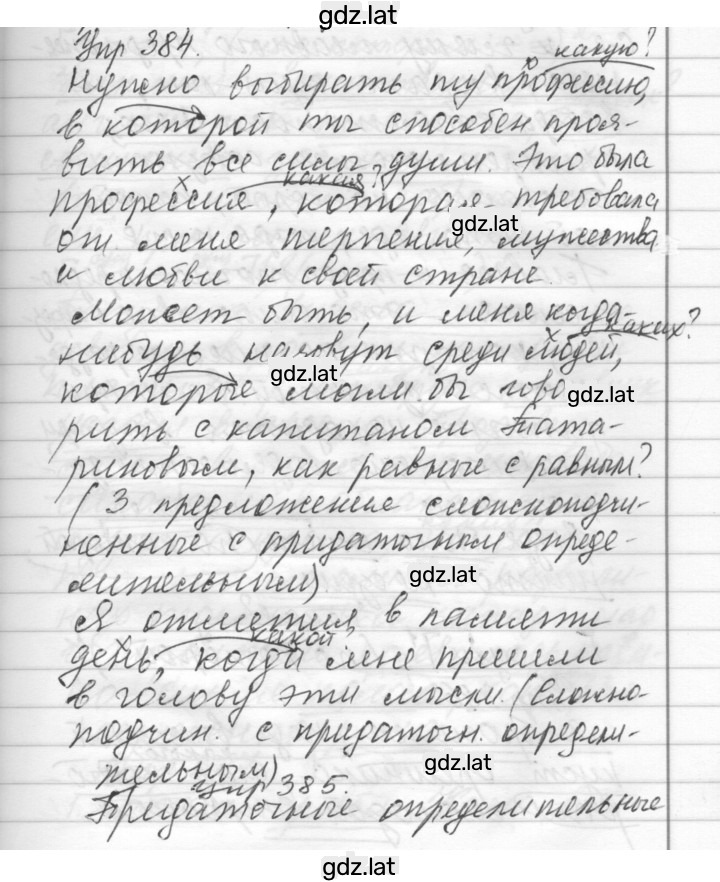 gdz.lat
Упр 384.
какую?
Нужно выбирать ту профессию,
в которой ты способен проя-
вить все силы души. Это была
какая?
профессия, которая требовала
gdz.lat
от меня терпения, мужества
и любви к своей стране.
Может быть, и меня когда-
каких?
нибудь назовут среди людей,
gdz.lat
которые могли бы гово
gdz.lat
рить с капитаном Тата-
риновым, как равные с равным?
(3 предложения сложноподчи-
ненные с придаточным опреде-
лительным)
gdz.lat
Я отметил в памяти
какой
день, когда мне пришли
в голову эти мысли. (Сложно-
подчин. с придаточн. определи-
тельным)
gdz.lat
Упр 385.
Придаточные определительные
gdz.lat